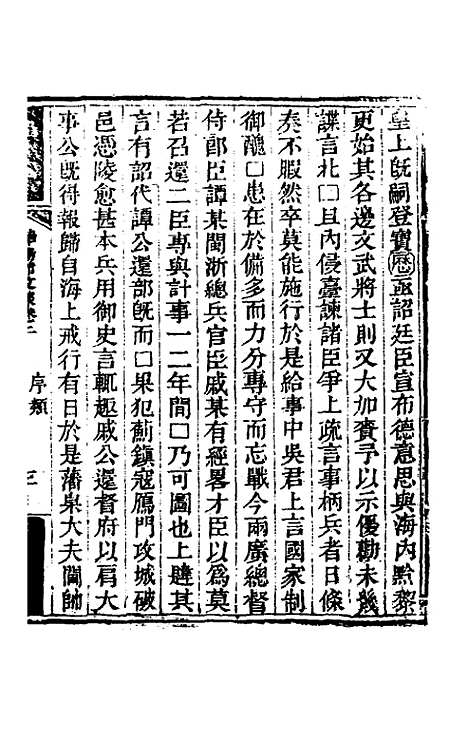 皇上旣嗣登寶歷亟詔廷臣宣布德意思與海內黔黎
更始其各邊文武將士則又大加賚予以示優勸未幾
諜言北□且內侵臺諫諸臣爭上疏言事柄兵者日條
奏不暇然卒莫能施行於是給事中吳君上言國家制
御醜□患在於備多而力分專守而忘戰今兩廣總督
侍郎臣譚某閩浙總兵官臣戚某有經畧才臣以爲莫
若召還二臣專與計事一二年間□乃可圖也上韙其
言有詔代譚公還部旣而□果犯薊鎮寇鴈門攻城破
邑憑陵愈甚本兵用御史言輒趣戚公還督府以肩大
事公旣得報歸自海上戒行有日於是藩臬大夫閫帥
序類
三